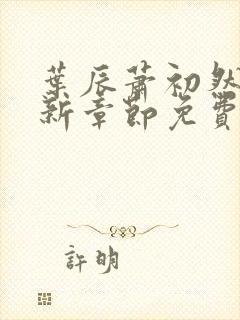 葉辰蕭初然
新章節免費
許明